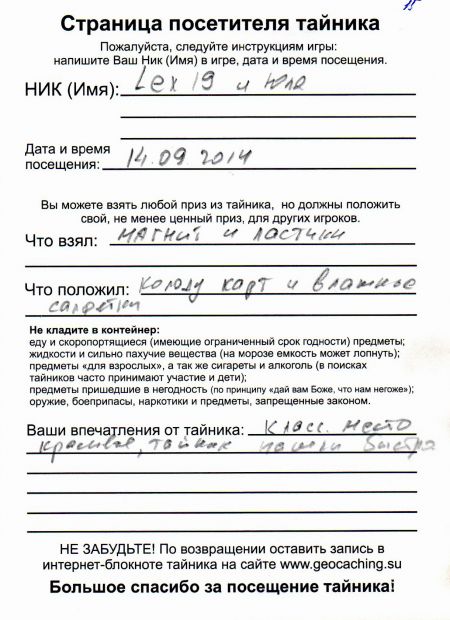 Страница посетителя тайника
Пожалуйста, следуйте инструкциям игры:
напишите Ваш Ник (Имя) в игре, дата и время посещения.
НИК (Имя): Lex 19 и Юля
Дата и время
посещения: 14.09.2014
Вы можете взять любой приз из тайника, но должны положить
свой, не менее ценный приз, для других игроков.
Что взял: магнит и ластики
Что положил: колоду карт и влажные
салфетки
Не кладите в контейнер:
еду и скоропортящиеся (имеющие ограниченный срок годности) предметы;
жидкости и сильно пахучие вещества (на морозе емкость может лопнуть);
предметы «для взрослых», а так же сигареты и алкоголь (в поисках
тайников часто принимают участие и дети);
предметы пришедшие в негодность (по принципу «дай вам Боже, что нам негоже»);
оружие, боеприпасы, наркотики и предметы, запрещенные законом.
Ваши впечатления от тайника: Класс. место
красивое, тайник нашли быстро
НЕ ЗАБУДЬТЕ! По возвращении оставить запись в
интернет-блокноте тайника на сайте www.geocaching.su
Большое спасибо за посещение тайника!